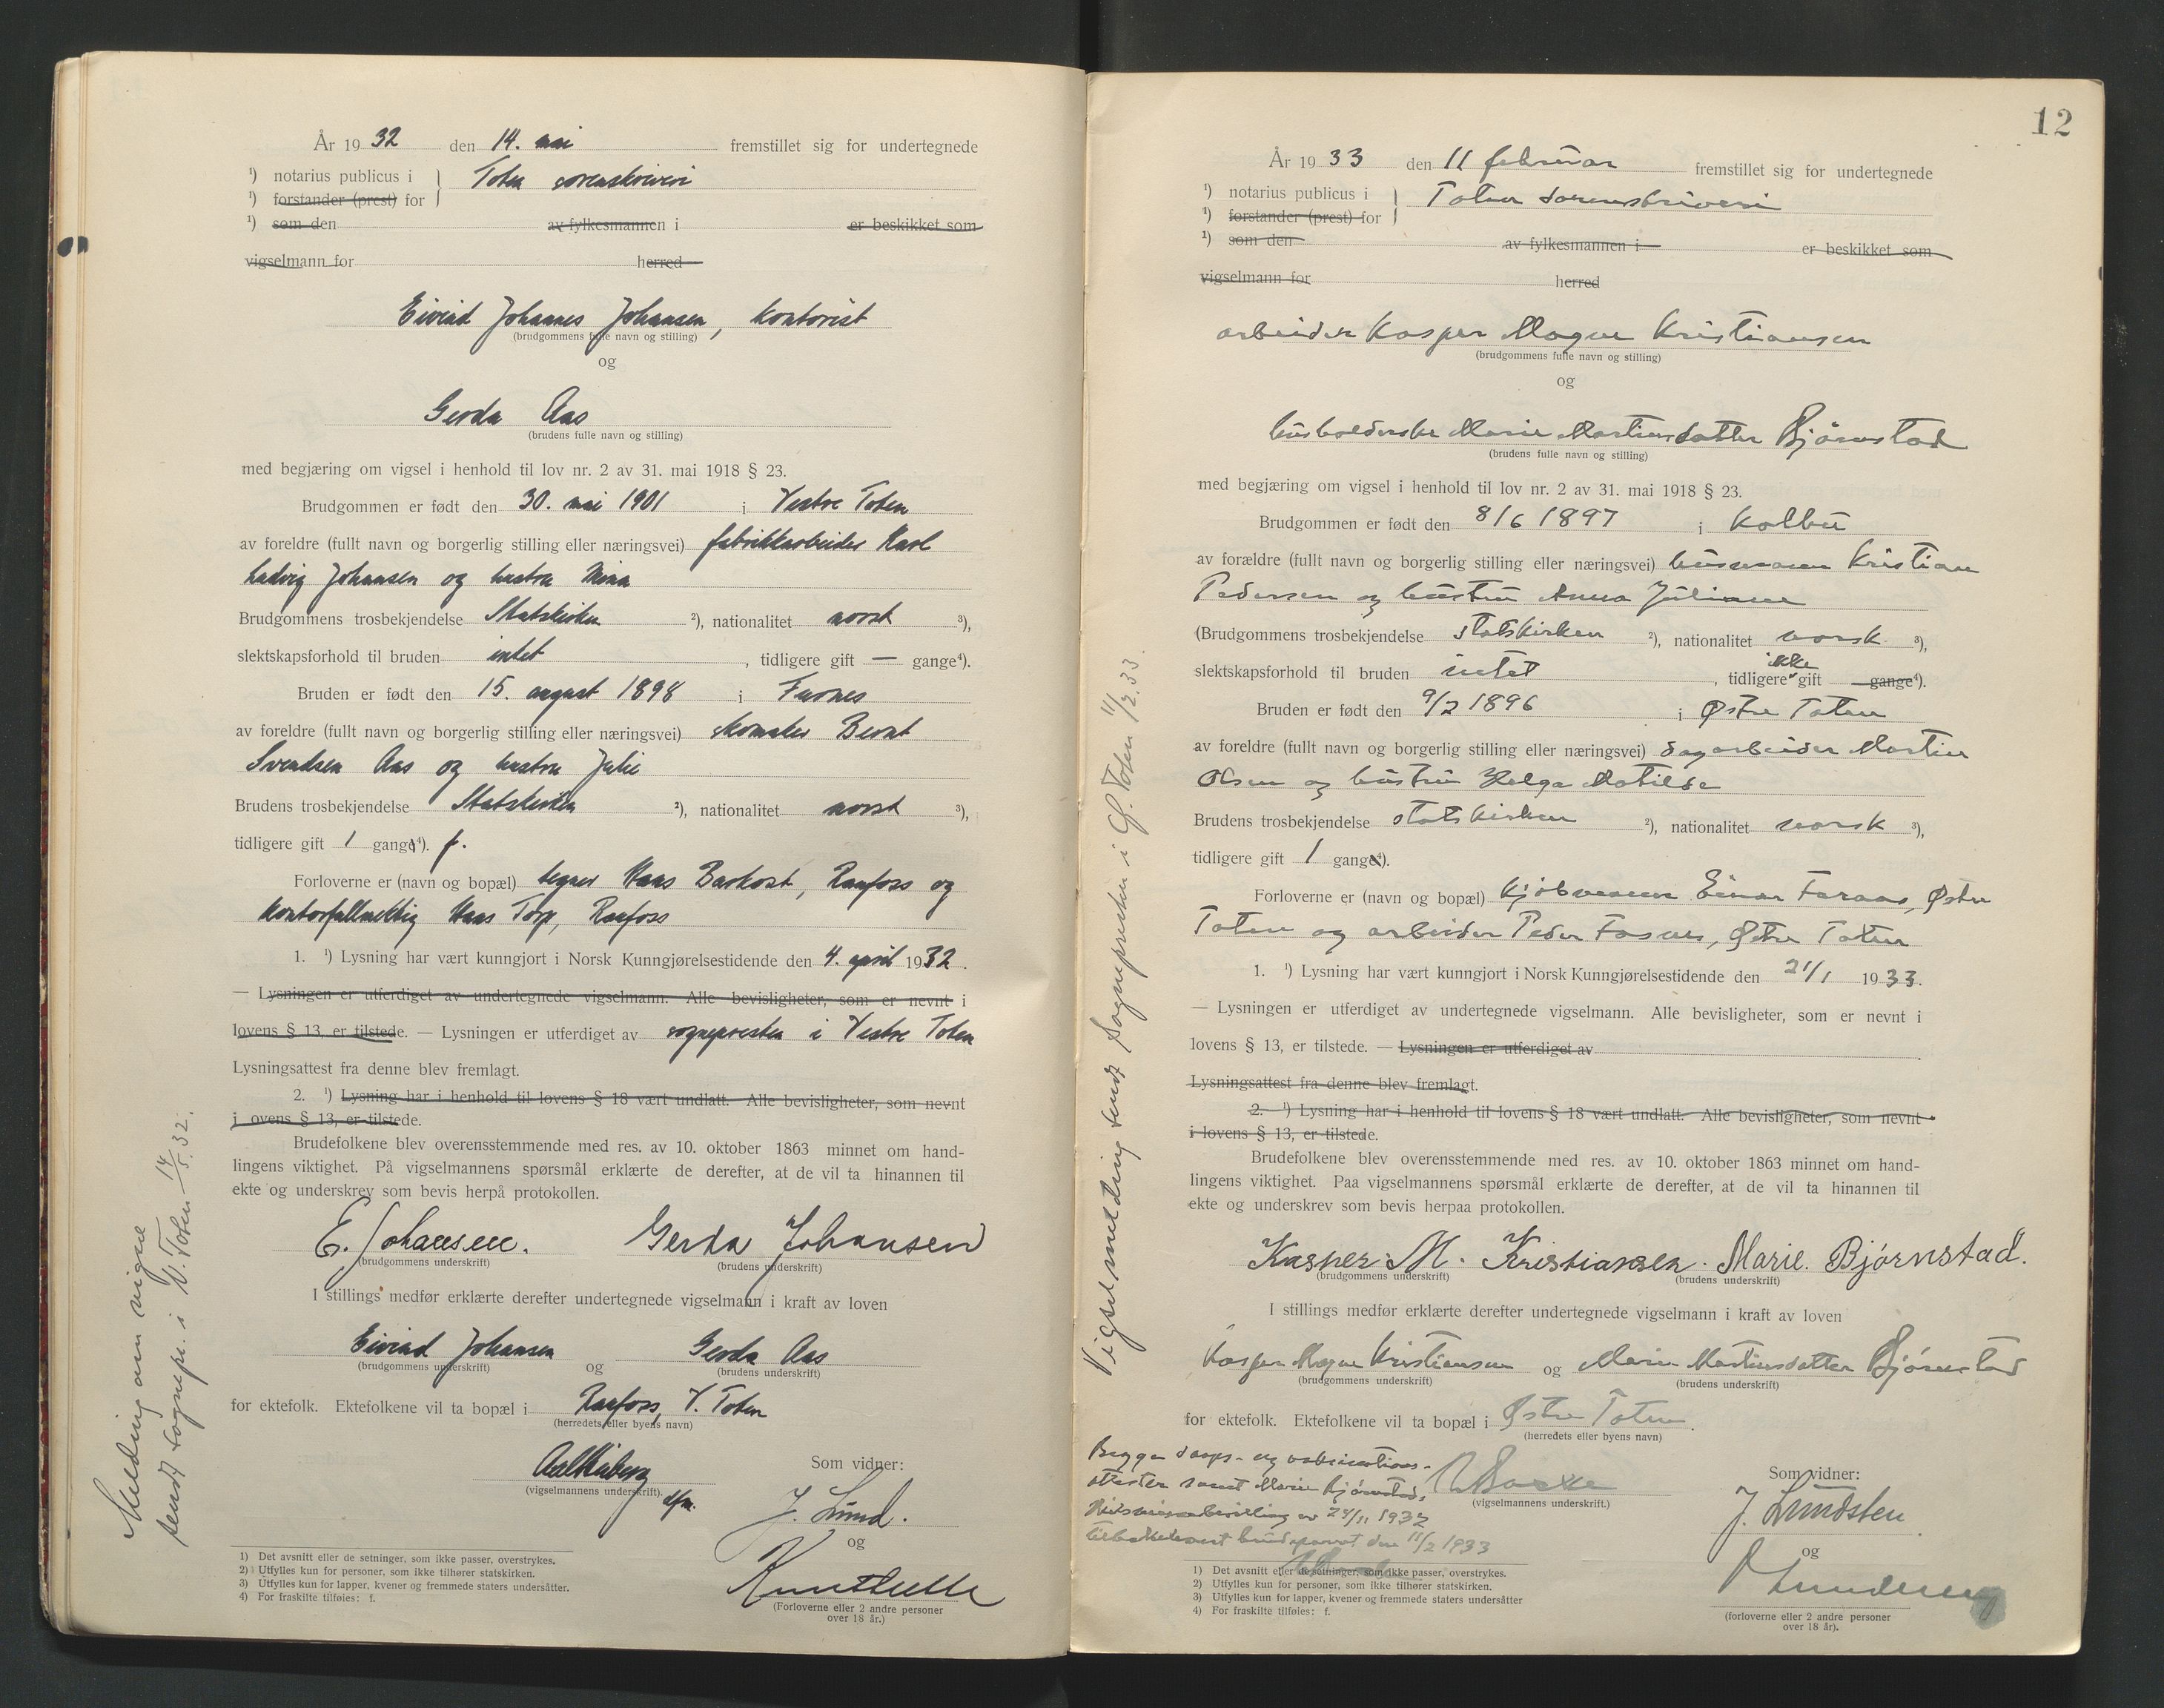 År 1932 den 14. mai fremstillet sig for undertegnede
¹) notarius publicus i } Toten sorenskriveri
¹) forstander (prest) for
¹) som den av fylkesmannen i er beskikket som
vigselmann for herred
Eivind Johannes Johansen, kontorist
(brudgommens fulle navn og stilling)
og
Gerda Aas
(brudens fulle navn og stilling)
med begjæring om vigsel i henhold til lov nr. 2 av 31. mai 1918 § 23.
Brudgommen er født den 30. mai 1901 i Vestre Toten
av foreldre (fullt navn og borgerlig stilling eller næringsvei) fabrikkarbeider Karl
Ludvig Johansen og hustru Mina
Brudgommens trosbekjendelse Statskirken ²), nationalitet norsk ³),
slektskapsforhold til bruden intet, tidligere gift — gange⁴).
Bruden er født den 15. august 1898 i Furnes
av foreldre (fullt navn og borgerlig stilling eller næringsvei) skomaker Bernt
Svendsen Aas og hustru Julie
Brudens trosbekjendelse Statskirken ²), nationalitet norsk ³),
tidligere gift 1 gange⁴). f.
Forloverne er (navn og bopæl) tegner Hans Barkost, Raufoss og
kontorfullmektig Hans Torp, Raufoss
1. ¹) Lysning har vært kunngjort i Norsk Kunngjørelsestidende den 4. april 1932.
— Lysningen er utferdiget av undertegnede vigselmann. Alle bevisligheter, som er nevnt i
lovens § 13, er tilstede. — Lysningen er utferdiget av sognepresten i Vestre Toten
Lysningsattest fra denne blev fremlagt.
2. ¹) Lysning har i henhold til lovens § 18 vært undlatt. Alle bevisligheter, som nevnt
i ovens § 13, er tilstede.
Brudefolkene blev overensstemmende med res. av 10. oktober 1863 minnet om hand-
lingens viktighet. På vigselmannens spørsmål erklærte de derefter, at de vil ta hinannen til
ekte og underskrev som bevis herpå protokollen.
E. Johansen. Gerda Johansen
(brudgommens underskrift) (brudens underskrift)
I stillings medfør erklærte derefter undertegnede vigselmann i kraft av loven
Eivind Johansen og Gerda Aas
(brudgommens underskrift) (brudens underskrift)
for ektefolk. Ektefolkene vil ta bopæl i Raufoss, V. Toten
(herredets eller byens navn)
(vigselmannens underskrift). dfm.
Som vidner:
J. Lund.
og
(Forloverne eller 2 andre personer
over 18 år.)
1) Det avsnitt eller de setninger, som ikke passer, overstrykes.
2) Utfylles kun for personer, som ikke tilhører statskirken.
3) Utfylles kun for lapper, kvener og fremmede staters undersåtter.
4) For fraskilte tilføies: f.
Melding om vigsel
sendt sognepr. i V. Toten 14/5.32.
12
År 1933 den 11 februar fremstillet sig for undertegnede
¹) notarius publicus i } Toten sorenskriveri
¹) forstander (prest) for
¹) som den av fylkesmannen i er beskikket som
vigselmann for herred
arbeider Kasper Magne Kristiansen
(brudgommens fulle navn og stilling)
og
husholderske Marie Martinsdatter Bjørnstad
(brudens fulle navn og stilling)
med begjæring om vigsel i henhold til lov nr. 2 av 31. mai 1918 § 23.
Brudgommen er født den 8/6 1897 i Kolbu
av forældre (fullt navn og borgerlig stilling eller næringsvei) husmann Kristian
Pedersen og hustru Anna Juliane
(Brudgommens trosbekjendelse statskirken ²), nationalitet norsk ³),
slektskapsforhold til bruden intet, tidligere ikke gift gange⁴).
Bruden er født den 9/2 1896 i Østre Toten
av foreldre (fullt navn og borgerlig stilling eller næringsvei) dagarbeider Martin
Olsen og hustru Helga Matilde
Brudens trosbekjendelse statskirken ²), nationalitet norsk ³),
tidligere gift 1 gange⁴).
Forloverne er (navn og bopæl) kjøbmann Einar Faraas, Østre
Toten og arbeider Peder Fosnes, Østre Toten
1. ¹) Lysning har vært kunngjort i Norsk Kunngjørelsestidende den 21/1 1933.
— Lysningen er utferdiget av undertegnede vigselmann. Alle bevisligheter, som er nevnt i
lovens § 13, er tilstede. — Lysningen er utferdiget av
Lysningsattest fra denne blev fremlagt.
2. ¹) Lysning har i henhold til lovens § 18 vært undlatt. Alle bevisligheter, som nevnt
i lovens § 13, er tilstede.
Brudefolkene blev overensstemmende med res. av 10. oktober 1863 minnet om hand-
lingens viktighet. Paa vigselmannens spørsmål erklærte de derefter, at de vil ta hinannen til
ekte og underskrev som bevis herpaa protokollen.
Kasper M. Kristiansen. Marie. Bjørnstad.
(brudgommens underskrift) (brudens underskrift)
I stillings medfør erklærte derefter undertegnede vigselmann i kraft av loven
Kasper Magne Kristiansen og Marie Martinsdatter Bjørnstad
(brudgommens underskrift) (brudens underskrift)
for ektefolk. Ektefolkene vil ta bopæl i Østre Toten.
(herredets eller byens navn)
Begges daaps- og vaksinations-
attester samt Marie Bjørnstads
skilsmissebevilling av 24/11 1932
tilbakelevert brudeparret den 11/2 1933
(vigselmannens underskrift.)
Som vidner:
J. Lundsten
og
(forloverne eller 2 andre personer
over 18 år).
1) Det avsnitt eller de setninger, som ikke passer, overstrykes.
2) Utfylles kun for personer, som ikke tilhører statskirken.
3) Utfylles kun for lapper, kvener og fremmede staters undersåtter
4) For fraskilte tilføies: f.
Vigselmelding sendt sognepresten i Ø. Toten 11/2.33.